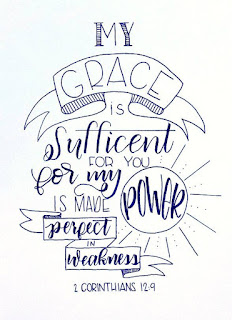 MY
GRACE
IS
Sufficent
FOR YOU
for my
POWER
IS MADE
perfect
IN
weakness
2 CORINTHIANS 12:9